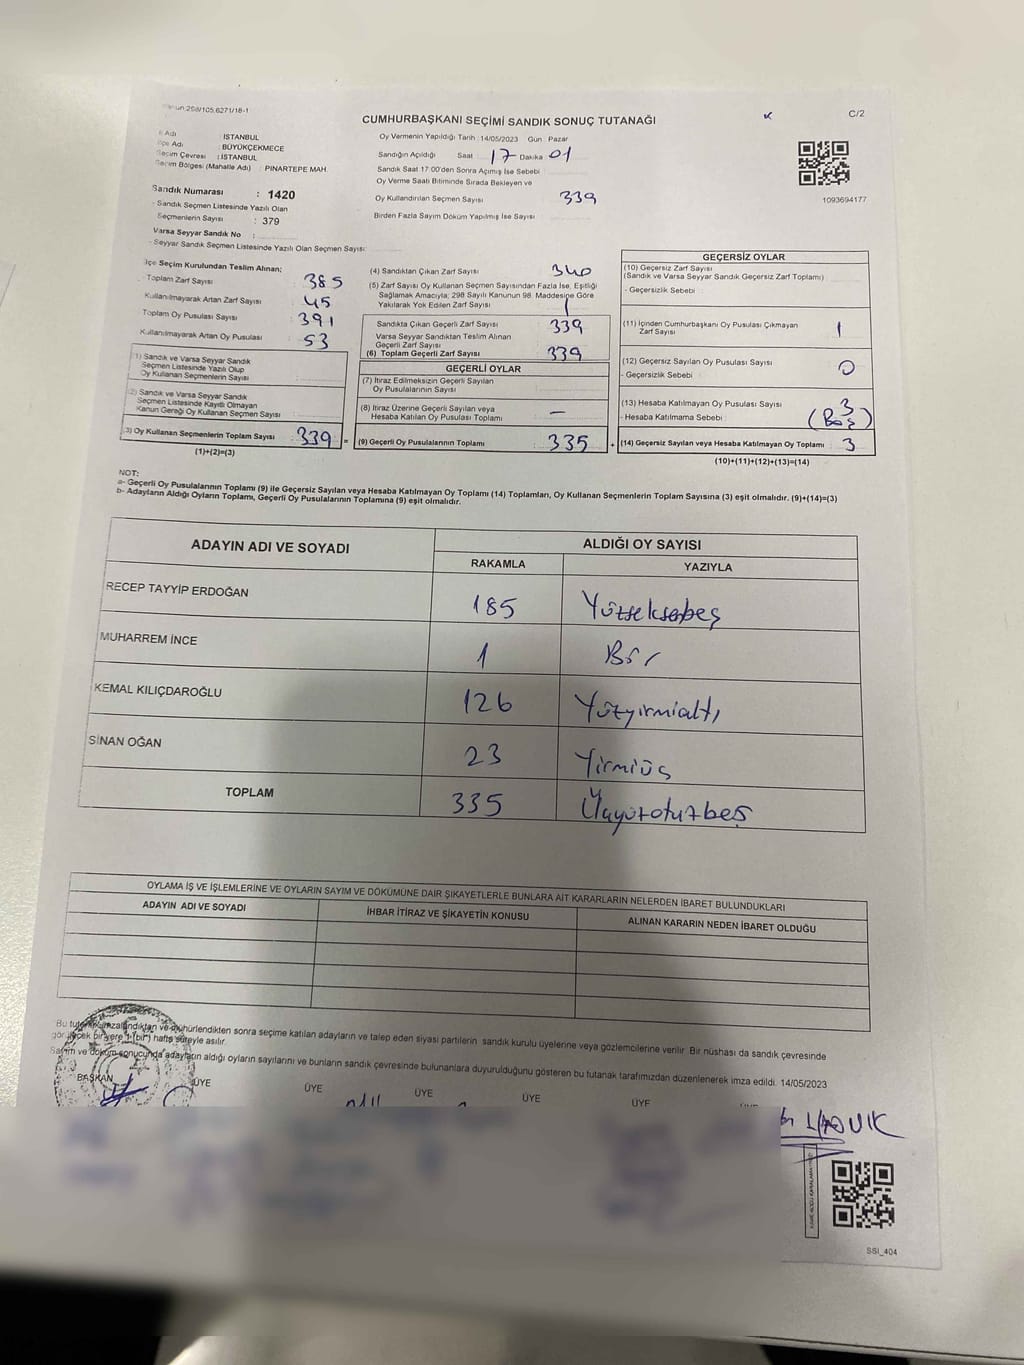 CUMHURBAŞKANI SEÇİMİ SANDIK SONUÇ TUTANAĞI
C/2
İl Adı : İSTANBUL
İlçe Adı : BÜYÜKÇEKMECE
Seçim Çevresi : İSTANBUL
Seçim Bölgesi (Mahalle Adı) : PINARTEPE MAH.
Sandık Numarası : 1420
- Sandık Seçmen Listesinde Yazılı Olan
Seçmenlerin Sayısı : 379
Varsa Seyyar Sandık No :
- Seyyar Sandık Seçmen Listesinde Yazılı Olan Seçmen Sayısı:
Oy Vermenin Yapıldığı Tarih : 14/05/2023 Gün : Pazar
Sandığın Açıldığı Saat 17 Dakika 01
Sandık Saat 17:00'den Sonra Açımış İse Sebebi
Oy Verme Saati Bitiminde Sırada Bekleyen ve
Oy Kullandırılan Seçmen Sayısı 339
Birden Fazla Sayım Döküm Yapılmış İse Sayısı
1093694177
İlçe Seçim Kurulundan Teslim Alınan;
Toplam Zarf Sayısı 385
Kullanılmayarak Artan Zarf Sayısı 45
Toplam Oy Pusulası Sayısı 391
Kullanılmayarak Artan Oy Pusulası 53
(1) Sandık ve Varsa Seyyar Sandık
Seçmen Listesinde Yazılı Olup
Oy Kullanan Seçmenlerin Sayısı
(2) Sandık ve Varsa Seyyar Sandık
Seçmen Listesinde Kayıtlı Olmayan
Kanun Gereği Oy Kullanan Seçmen Sayısı
(3) Oy Kullanan Seçmenlerin Toplam Sayısı 339 =
(1)+(2)=(3)
(4) Sandıktan Çıkan Zarf Sayısı 340
(5) Zarf Sayısı Oy Kullanan Seçmen Sayısından Fazla İse, Eşitliği
Sağlamak Amacıyla; 298 Sayılı Kanunun 98. Maddesine Göre
Yakılarak Yok Edilen Zarf Sayısı 1
Sandıkta Çıkan Geçerli Zarf Sayısı 339
Varsa Seyyar Sandıktan Teslim Alınan
Geçerli Zarf Sayısı
(6) Toplam Geçerli Zarf Sayısı 339
GEÇERLİ OYLAR
(7) İtiraz Edilmeksizin Geçerli Sayılan
Oy Pusulalarının Sayısı
(8) İtiraz Üzerine Geçerli Sayılan veya
Hesaba Katılan Oy Pusulası Toplamı —
(9) Geçerli Oy Pusulalarının Toplamı 335 +
GEÇERSİZ OYLAR
(10) Geçersiz Zarf Sayısı
(Sandık ve Varsa Seyyar Sandık Geçersiz Zarf Toplamı)
- Geçersizlik Sebebi
(11) İçinden Cumhurbaşkanı Oy Pusulası Çıkmayan
Zarf Sayısı 1
(12) Geçersiz Sayılan Oy Pusulası Sayısı 0
- Geçersizlik Sebebi
(13) Hesaba Katılmayan Oy Pusulası Sayısı 3
- Hesaba Katılmama Sebebi (Boş)
(14) Geçersiz Sayılan veya Hesaba Katılmayan Oy Toplamı 3
(10)+(11)+(12)+(13)=(14)
NOT:
a- Geçerli Oy Pusulalarının Toplamı (9) ile Geçersiz Sayılan veya Hesaba Katılmayan Oy Toplamı (14) Toplamları, Oy Kullanan Seçmenlerin Toplam Sayısına (3) eşit olmalıdır. (9)+(14)=(3)
b- Adayların Aldığı Oyların Toplamı, Geçerli Oy Pusulalarının Toplamına (9) eşit olmalıdır.
ADAYIN ADI VE SOYADI ALDIĞI OY SAYISI
RAKAMLA YAZIYLA
RECEP TAYYİP ERDOĞAN 185 Yüzseksenbeş
MUHARREM İNCE 1 Bir
KEMAL KILIÇDAROĞLU 126 Yüzyirmialtı
SİNAN OĞAN 23 Yirmiüç
TOPLAM 335 Üçyüzotuzbeş
OYLAMA İŞ VE İŞLEMLERİNE VE OYLARIN SAYIM VE DÖKÜMÜNE DAİR ŞİKAYETLERLE BUNLARA AİT KARARLARIN NELERDEN İBARET BULUNDUKLARI
ADAYIN ADI VE SOYADI İHBAR İTİRAZ VE ŞİKAYETİN KONUSU ALINAN KARARIN NEDEN İBARET OLDUĞU
Bu tutanak imzalandıktan ve mühürlendikten sonra seçime katılan adayların ve talep eden siyasi partilerin sandık kurulu üyelerine veya gözlemcilerine verilir. Bir nüshası da sandık çevresinde
görülecek bir yere 1 (bir) hafta süreyle asılır.
Sayım ve döküm sonucunda adayların aldığı oyların sayılarını ve bunların sandık çevresinde bulunanlara duyurulduğunu gösteren bu tutanak tarafımızdan düzenlenerek imza edildi. 14/05/2023
BAŞKAN ÜYE ÜYE ÜYE ÜYE ÜYE
SSI_404